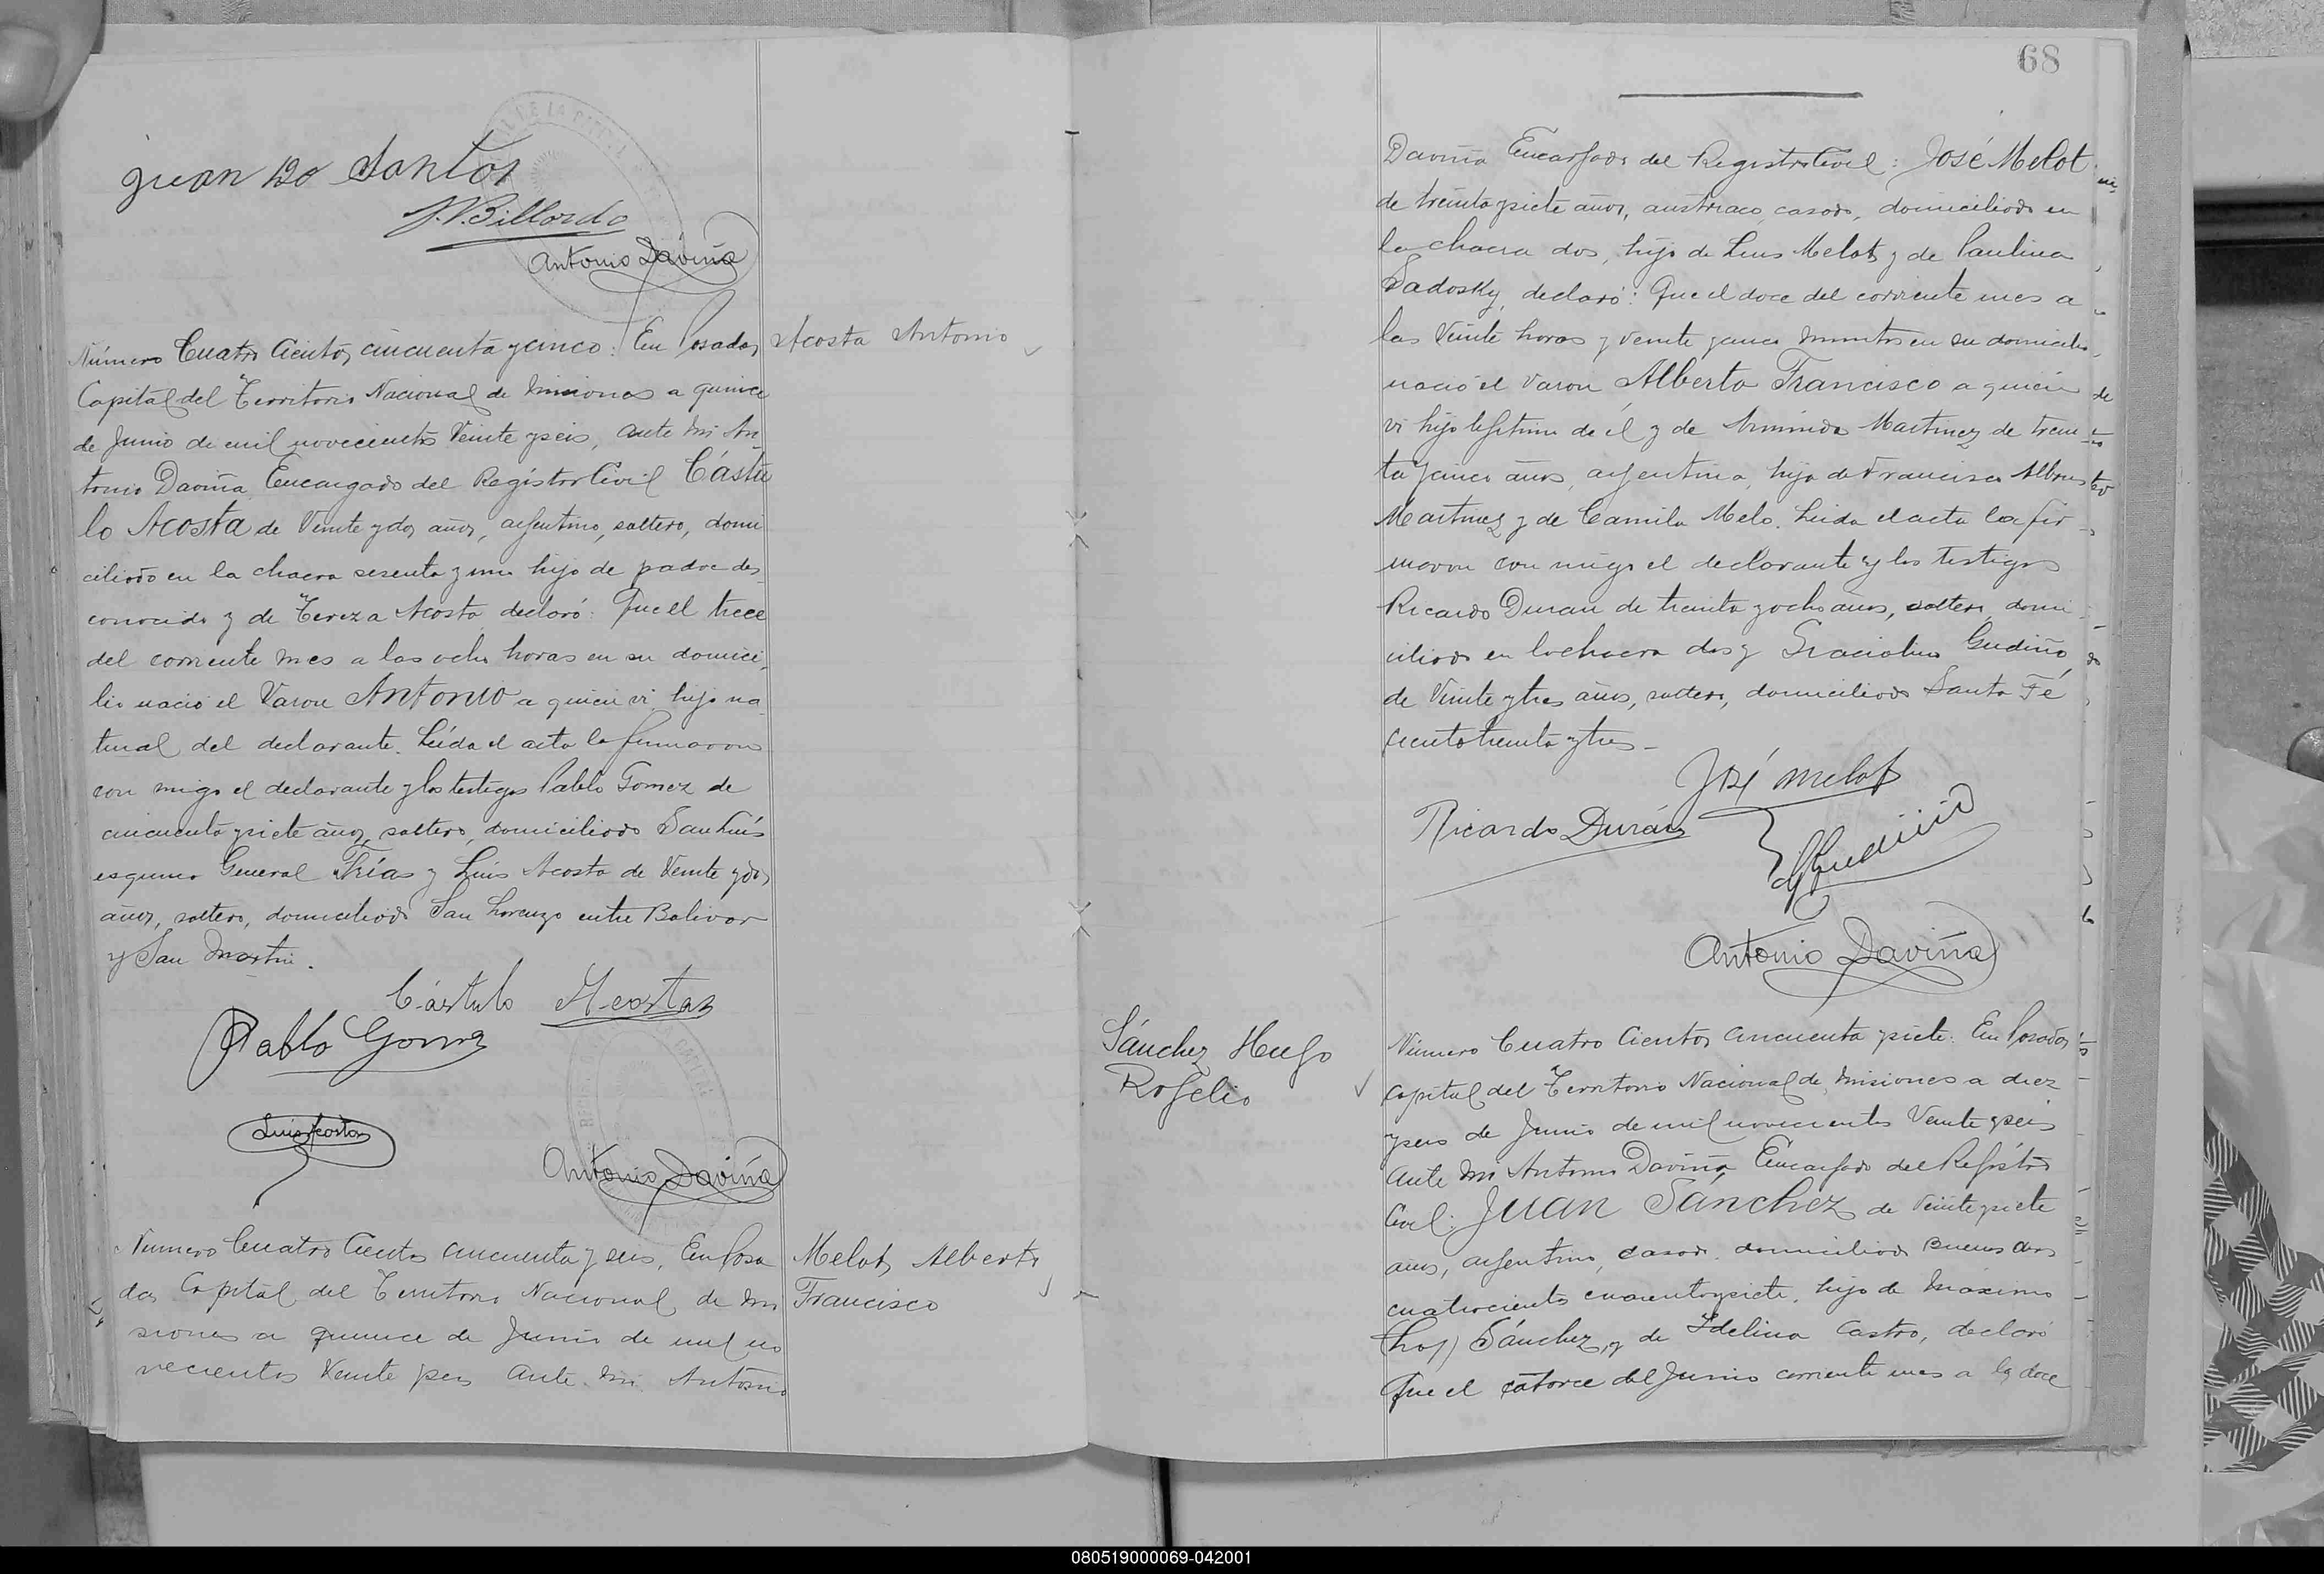 Juan do Santos
J. V. Billordo
Antonio Daviña
Número Cuatro Cientos cincuenta y cinco: En Posadas
Acosta Antonio
Capital del Territorio Nacional de Misiones a quince
de Junio de mil novecientos Veinte y seis, ante mi An
tonio Daviña Encargado del Registro Civil Cástu
lo Acosta de Veinte y dos años, argentino, soltero, domi
ciliado en la chacra sesenta y una hijo de padre des
conocido y de Tereza Acosta declaró: Que el trece
del corriente mes a las ocho horas en su domici
lio nació el Varon Antonio a quien vi hijo na
tural del declarante. Leída el acta la firmaron
con migo el declarante y los testigos Pablo Gomez de
cincuenta y siete años, soltero, domiciliado San Luis
esquina General Frías y Luis Acosta de Veinte y dos
años, soltero, domiciliado San Lorenzo entre Bolivar
y San Martin.
Cástulo Acosta
Pablo Gomez
Luis Acosta
Antonio Daviña
Número Cuatro Cientos cincuenta y seis, En Posa
das Capital del Territorio Nacional de Mi
siones a quince de Junio de mil no
vecientos Veinte y seis Ante mi Antonio
Melot Alberto
Francisco
68
Daviña Encargado del Registro Civil: José Melot
de treinta y siete años, austriaco, casado, domiciliado en
la chacra dos, hijo de Luis Melot y de Paulina
Sadosky, declaró: Que el doce del corriente mes a
las Veinte horas y veinte y cinco minutos en su domicilio
nació el Varon Alberto Francisco a quien
vi hijo legitimo de él y de Arminda Martinez de trein
ta y cinco años, argentina, hija de Francisco
Martinez y de Camila Melo. Leida el acta la fir
maron con migo el declarante y los testigos
Ricardo Duran de treinta y ocho años, soltero, domi
ciliado en la chacra dos y Graciolino Gudiño
de Veinte y tres años, soltero, domiciliado Santa Fé
ciento treinta y tres
José Melot
Ricardo Durán
Gudiño
Antonio Daviña
Sánchez Hugo
Rogelio
Número Cuatro Cientos cincuenta y siete: En Posadas
Capital del Territorio Nacional de Misiones a diez
y seis de Junio de mil novecientos Veinte y seis
Ante mi Antonio Daviña Encargado del Registro
Civil: Juan Sánchez de Veinte y siete
años, argentino, casado, domiciliado Buenos Aires
cuatrocientos cuarenta y siete, hijo de Máximo
Sánchez, y de Idelina Castro, declaró
Que el catorce del Junio corriente mes a las doce
080519000069-042001